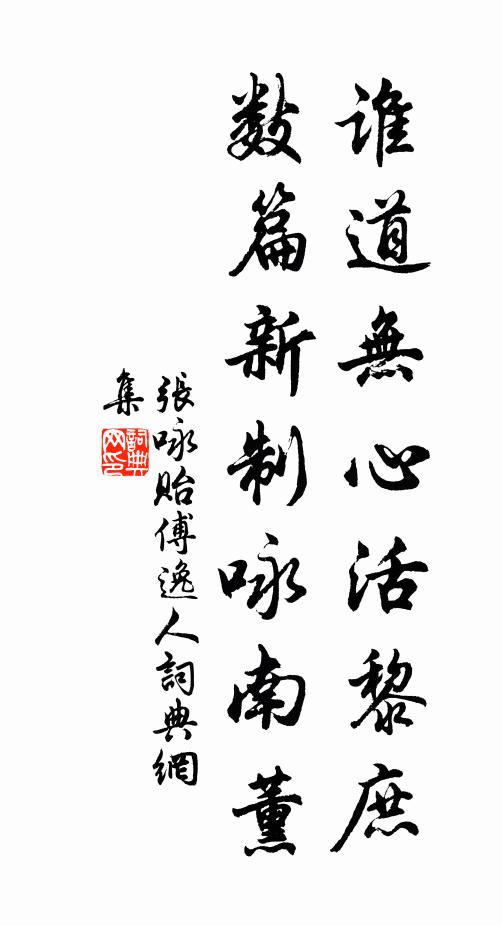 谁道無心活黎庶
数篇新制咏南薰
張咏贻傅逸人詞典網
集
詞典网印